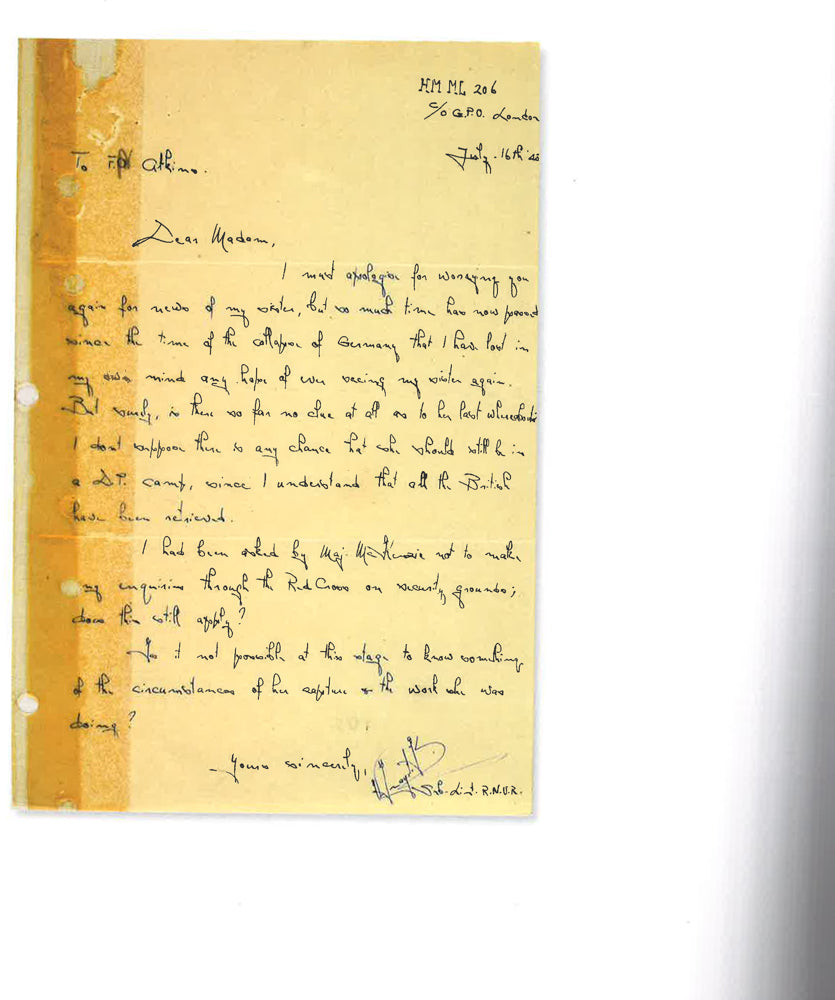 HM ML 206
c/o G.P.O. London
July. 16th 45
To F/O Atkins.
Dear Madam,
I must apologise for worrying you
again for news of my sister, but so much time has now passed
since the time of the collapse of Germany that I have lost in
my own mind any hope of ever seeing my sister again.
But surely, is there so far no clue at all as to her last whereabouts
I dont suppose there is any chance that she should still be in
a D.P. camp, since I understand that all the British
have been retrieved.
I had been asked by Maj. McKenzie not to make
my enquiries through the Red Cross on security grounds;
does this still apply?
Is it not possible at this stage to know something
of the circumstances of her capture or the work she was
doing?
Yours sincerely,
Sub-Lieut. R.N.V.R.